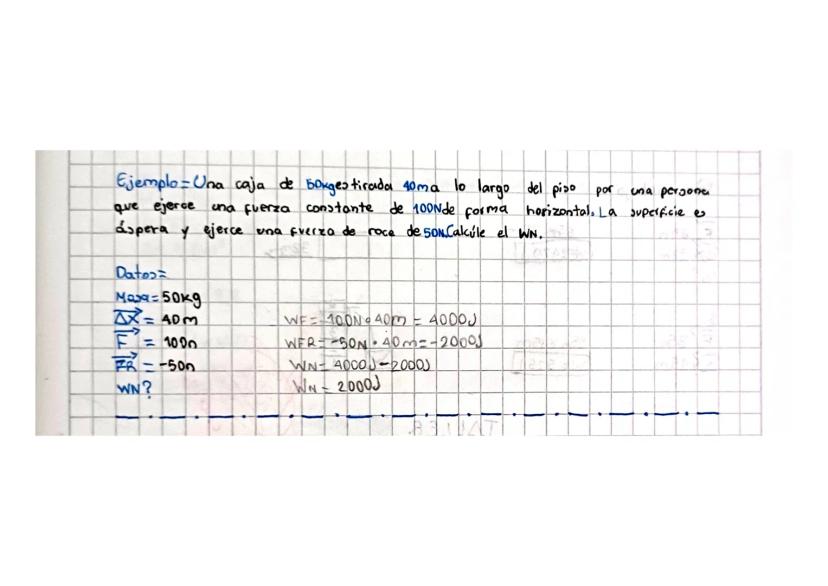 Ejemplo= Una caja de 50kg es tirada 40m a lo largo del piso por una persona
que ejerce una fuerza constante de 100N de forma horizontal. La superficie es
áspera y ejerce una fuerza de roce de 50N. Calcúle el WN.
Datos=
Masa= 50kg
ΔX = 40m
WF= 100N • 40m = 4000J
F = 100n
WFR= -50N • 40m = -2000J
FR = -50n
WN= 4000J - 2000J
WN?
WN = 2000J